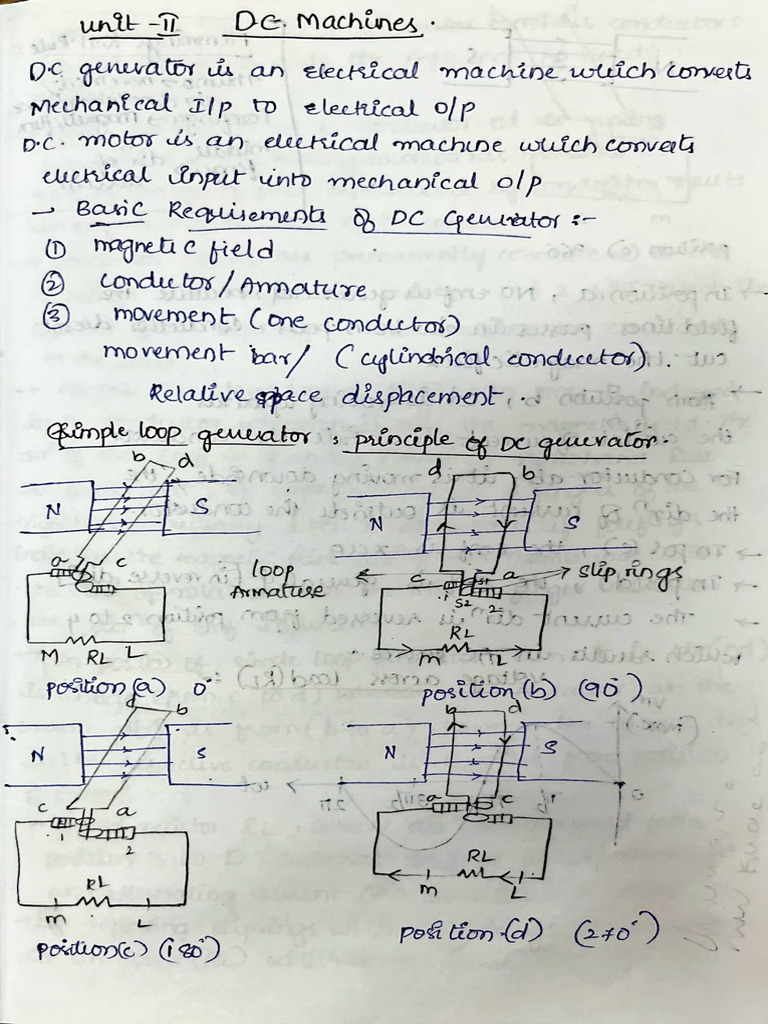 unit - II D.C. Machines.
DC generator is an electrical machine which converts
Mechanical I/p to electrical o/p
D.C. motor is an electrical machine which converts
electrical input into mechanical o/p
→ Basic Requirements of DC Generator :-
① magnetic field
② conductor/Armature
③ movement (one conductor)
movement bar/ (cylindrical conductor).
Relative space displacement.
Simple loop generator : principle of DC generator.
b d d b
N S N S
a c c a slip rings
loop
Armature
1 S1 S2 2
M RL L RL m L
position (a) 0° position (b) (90°)
d b b d
N S N S
c a a c
1 2
RL RL
m L m L
position(c) (180°) position-(d) (270°)